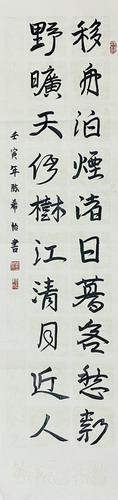 移舟泊煙渚日暮客愁新
野曠天低樹江清月近人
壬寅年陈希怡書